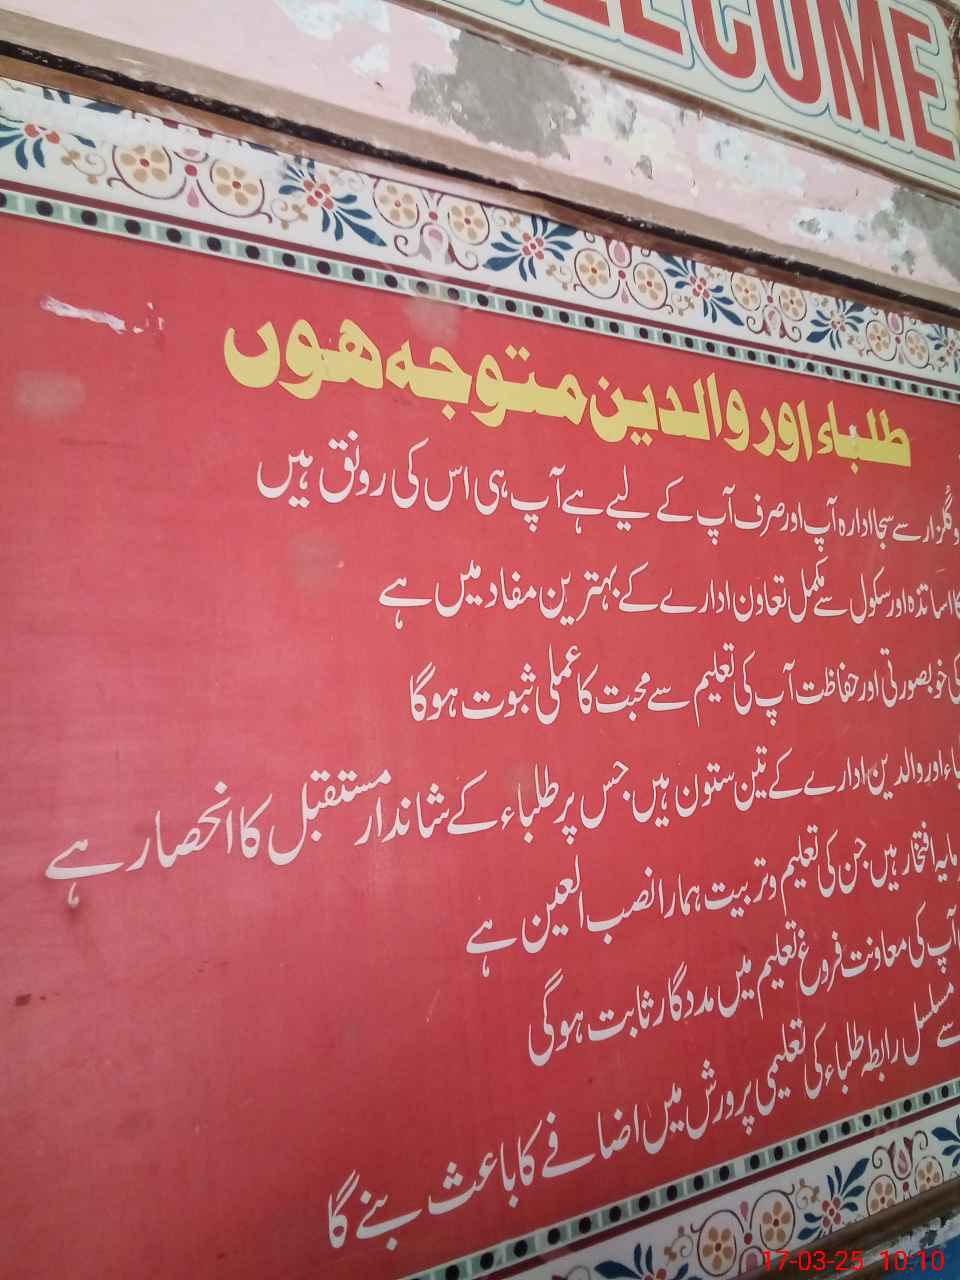 WELCOME
طلباء اور والدین متوجہ ھوں
وگلزار سے سجا ادارہ آپ اور صرف آپ کے لیے ہے آپ ہی اس کی رونق ہیں
اساتذہ اور سکول سے مکمل تعاون ادارے کے بہترین مفاد میں ہے
کی خوبصورتی اور حفاظت آپ کی تعلیم سے محبت کا عملی ثبوت ہوگا
اور والدین ادارے کے تین ستون ہیں جس پر طلباء کے شاندار مستقبل کا انحصار ہے
افتخار ہیں جن کی تعلیم و تربیت ہمارا نصب العین ہے
آپ کی معاونت فروغ تعلیم میں مددگار ثابت ہوگی
سے مسلسل رابطہ طلباء کی تعلیمی پرورش میں اضافے کا باعث بنے گا
17-03-25 10:10